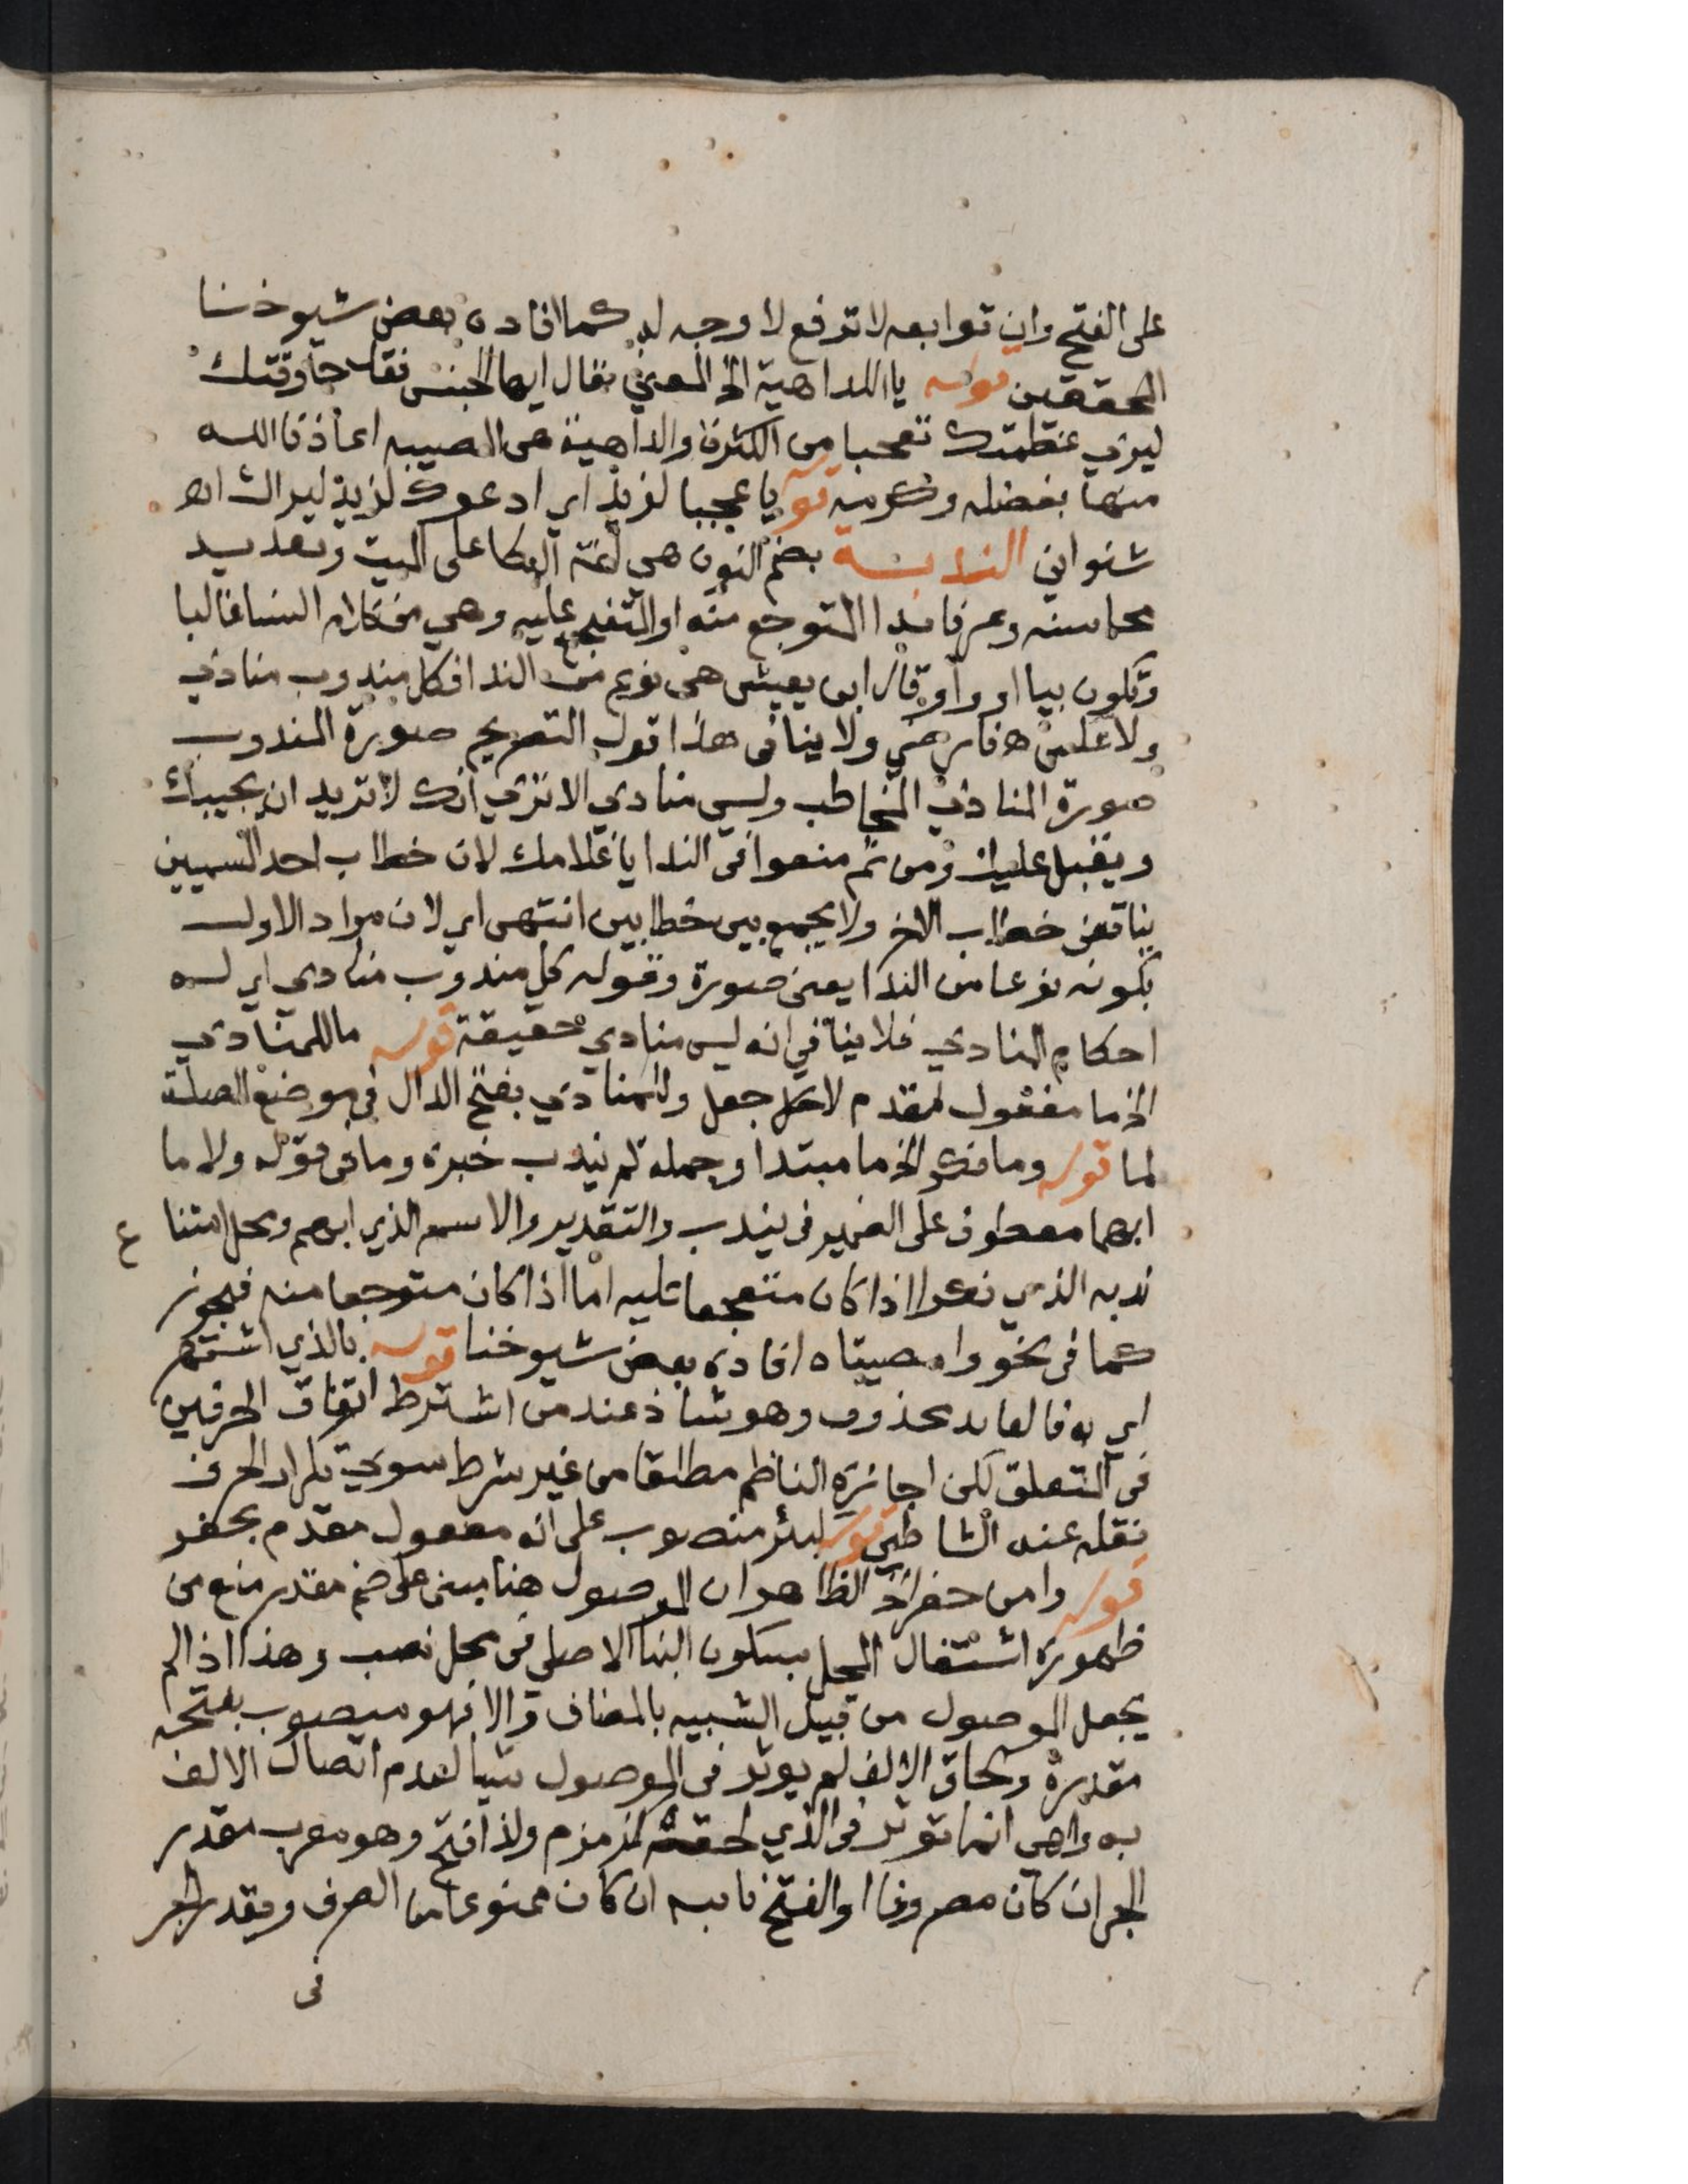 على الفتح وان توابعه لا ترفع لا وجه له كما افاده بعض شيوخنا
المحققين قوله يا للداهية الخ المعنى يقال ايها الجنس تعال جا وقتك
ليرى عظمتك تعجبا من الكثرة والداهية هى المصيبه اعاذنا الله
منها بفضله وكرمه قوله يا عجبا لزيد اي ادعوك لزيد ليراك اه
شنواني الندبة بضم النون هي لغة البكا على الميت وتعديد
محاسنه وعرفا ندا المتوجع منه او المتفجع عليه وهي من كلام النسا غالبا
وتكون بيا او وا وقال ابن يعيش هى نوع من الندا فكل مندوب منادي
ولا عكس فارضي ولا ينافى هذا قول التصريح صورة المندوب
صورة المنادي المخاطب وليس منادي الا تري انك لا تريد ان يجيبك
ويقبل عليك ومن ثم منعوا فى الندا يا غلامك لان خطاب احد المسميين
يناقض خطاب الاخر ولا يجمع بين خطابين انتهى اي لان مراد الاول
بكونه نوعا من الندا يعنى صورة وقوله كل مندوب منادي اي له
احكام المنادي فلا ينافي انه ليس منادي حقيقة قوله ما للمنادي
الخ ما مفعول مقدم لاجعل وللمنادي بفتح الدال فى موضع الصلة
لما قوله وما نكر الخ ما مبتدا وجملة لم يندب خبره وما فى قوله ولا ما
ابهما معطوف على الضمير فى يندب والتقدير ولا الاسم الذي ابهم ومحل امتنا ع
ندبه الذي نكر اذا كان متفجعا عليه اما اذا كان متوجعا منه فيجوز
كما فى نحو وا مصيبتاه افاده بعض شيوخنا قوله بالذي اشتهر
اي به فالعايد محذوف وهو شاذ عند من اشترط اتفاق الحرفين
فى التعلق لكن اجازه الناظم مطلقا من غير شرط سوي تكرار الحرف
نقله عنه الشاطبي قوله لبئر منصوب على انه مفعول مقدم بحفر
قوله وامن حفر الخ الظاهر ان الموصول هنا مبنى على ضم مقدر منع من
ظهوره اشتغال المحل بسكون البنا الاصلي فى محل نصب وهذا اذا لم
يجعل الموصول من قبيل الشبيه بالمضاف والا فهو منصوب بفتحه
مقدرة ولحاق الالف لم يوثر فى الموصول شيا لعدم اتصال الالف
به واهي انما توثر فى الذي لحقته كزمزم ولذا فتح وهو معرب مقدر
الجر ان كان مصروفا والفتح نايبه ان كان ممنوعا من الصرف ومقدر الجر
فى